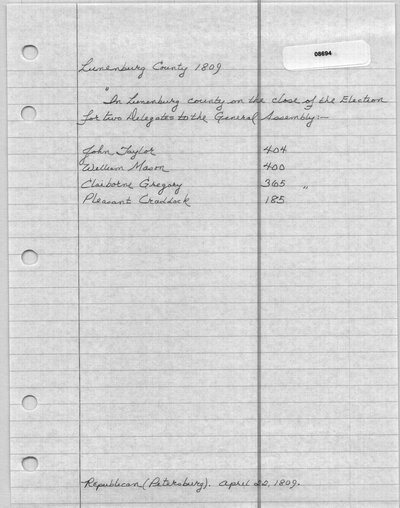 08694
Lunenburg County 1809
"In Lunenburg county on the close of the Election
for two Delegates to the General Assembly:—
John Taylor 404
William Mason 400
Claiborne Gregory 365 "
Pleasant Craddock 185
Republican (Petersburg). April 20, 1809.